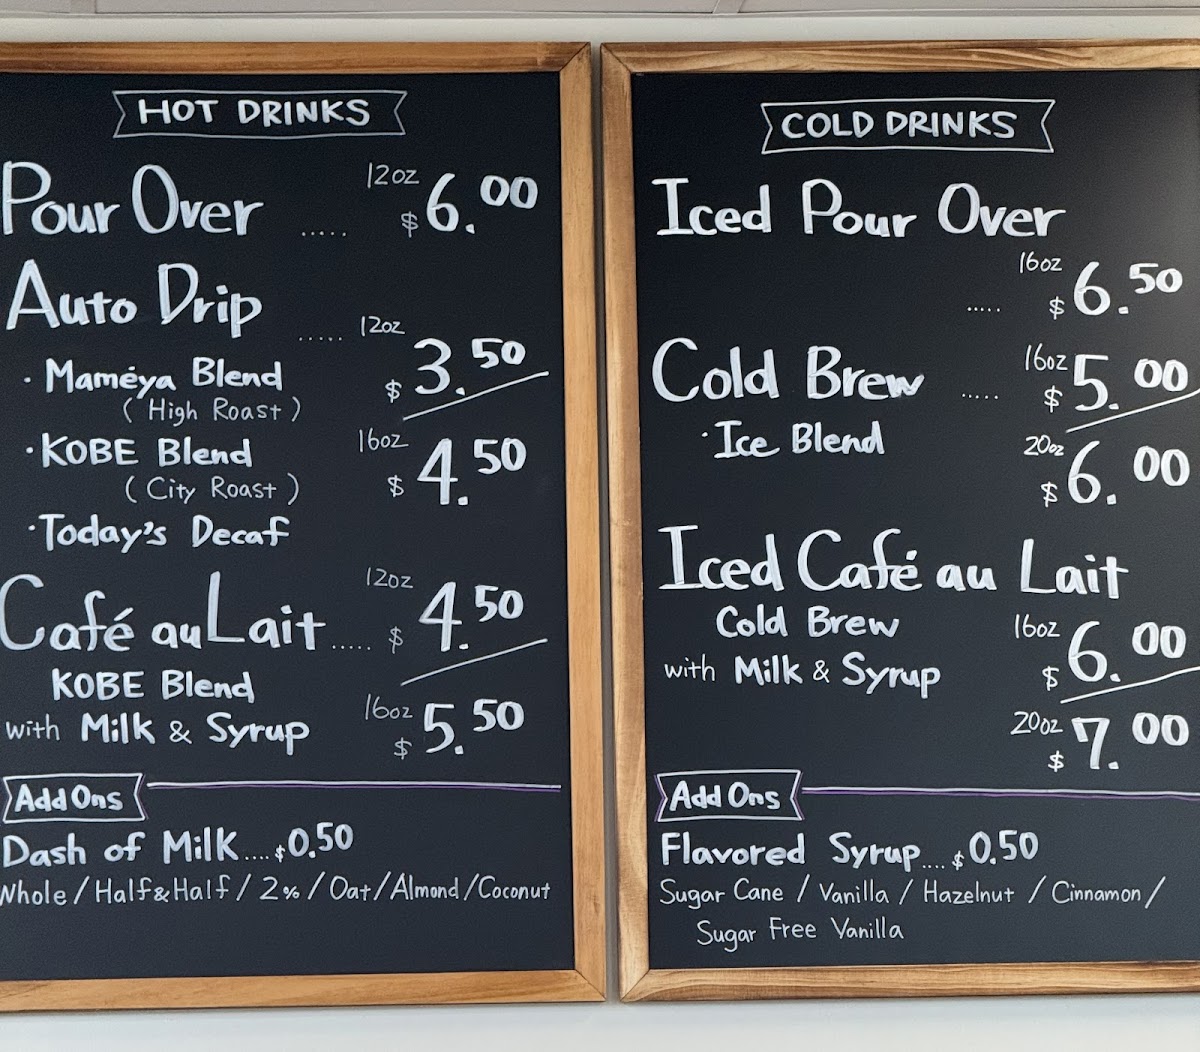 HOT DRINKS
Pour Over ..... 12oz $6.00
Auto Drip ..... 12oz $3.50
· Maméya Blend
( High Roast )
· KOBE Blend 16oz $4.50
( City Roast )
· Today's Decaf
Café au Lait ..... 12oz $4.50
KOBE Blend
with Milk & Syrup 16oz $5.50
Add Ons
Dash of Milk .... $0.50
Whole / Half&Half / 2% / Oat / Almond / Coconut
COLD DRINKS
Iced Pour Over
..... 16oz $6.50
Cold Brew ..... 16oz $5.00
· Ice Blend 20oz $6.00
Iced Café au Lait
Cold Brew 16oz $6.00
with Milk & Syrup
20oz $7.00
Add Ons
Flavored Syrup .... $0.50
Sugar Cane / Vanilla / Hazelnut / Cinnamon /
Sugar Free Vanilla